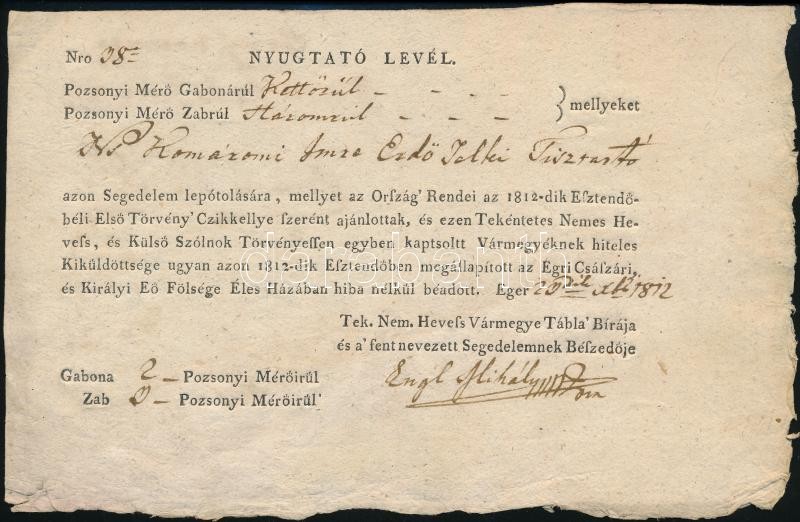 Nro 38=
NYUGTATÓ LEVÉL.
Pozsonyi Mérő Gabonárúl Kettőrűl - - - -
Pozsonyi Mérő Zabrúl Háromrúl - - - } mellyeket
Komáromi Imre Erdő Telki Tisztartó
azon Segedelem lepótolására, mellyet az Orſzág' Rendei az 1812-dik Eſztendő-
béli Első Törvény' Czikkellye szerént ajánlottak, és ezen Tekéntetes Nemes He-
veſs, és Külső Szólnok Törvényeſſen egyben kaptsoltt Vármegyéknek hiteles
Kiküldöttsége ugyan azon 1812-dik Eſztendőben megállapított az Egri Csáſzári,
és Királyi Eő Fölsége Éles Házában hiba nélkül béadott. Eger 1812
Tek. Nem. Heveſs Vármegye Tábla' Bírája
és a' fent nevezett Segedelemnek Béſzedője
Gabona 2 - Pozsonyi Mérőirűl
Engl Mihály
Zab 3 - Pozsonyi Mérőirűl